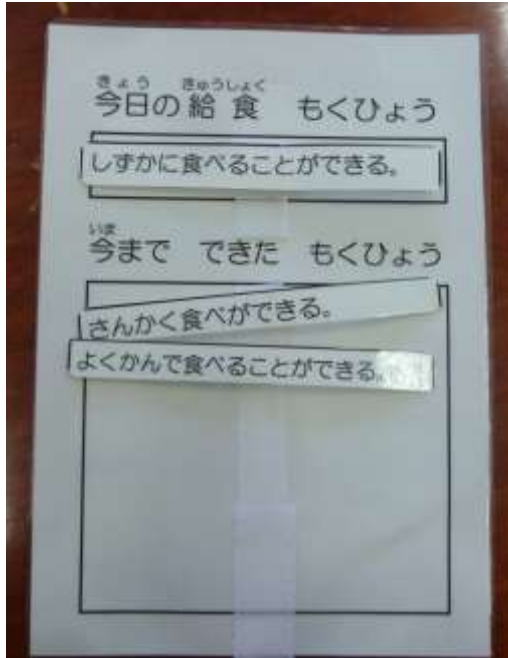 きょう きゅうしょく
今日の給食 もくひょう
しずかに食べることができる。
いま
今まで できた もくひょう
さんかく食べができる。
よくかんで食べることができる。